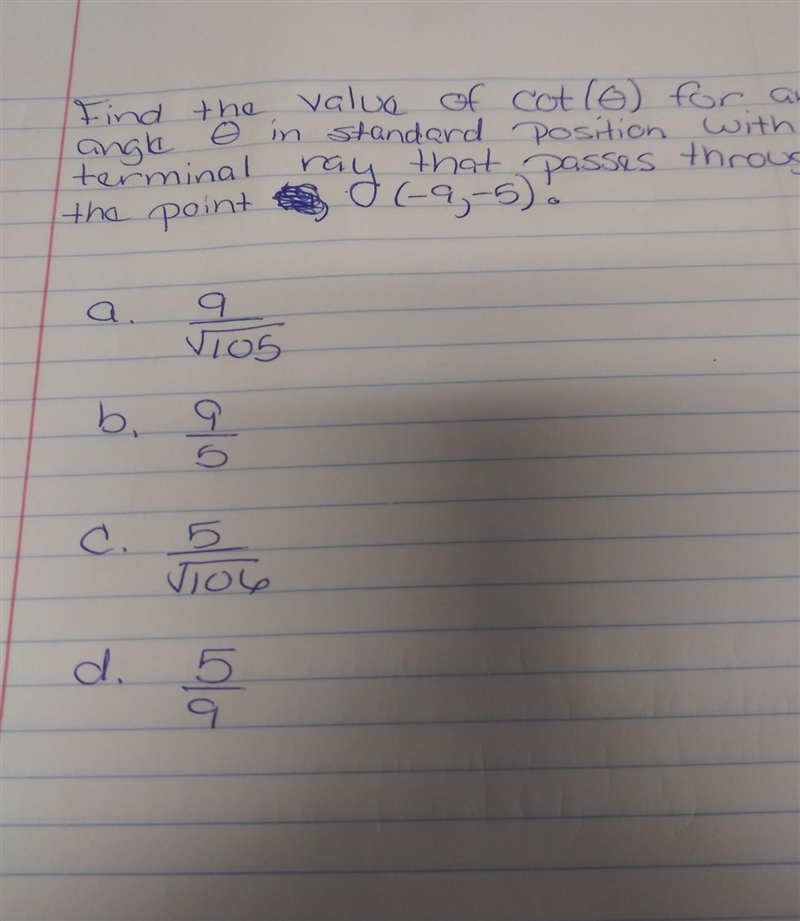 Find the value of cot(θ) for an
angle θ in standard position with
terminal ray that passes throug
the point (-9,-5).
a. 9/√105
b. 9/5
c. 5/√106
d. 5/9